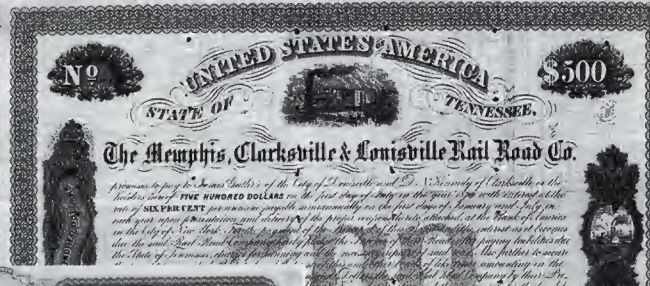 UNITED STATES AMERICA
No $500
STATE OF TENNESSEE,
The Memphis, Clarksville & Louisville Rail Road Co.
promises to pay to James Guthrie of the City of Louisville and D. N. Kennedy of Clarksville or the
holders hereof FIVE HUNDRED DOLLARS on the first day of July in the year with interest at the
rate of SIX PER CENT per annum payable semiannually on the first days of January and July in
each year upon presentation and delivery of the proper coupons hereto attached, at the Bank of America
in the City of New York. For the payment of the Principal of this and the interest as it becomes
due the said Rail Road Company hereby pledge the Income of their Road after paying liabilities due
the State of Tennessee, charges for running and the necessary repairs of said road. Also further to secure
of like tenor amounting in the
Dollars, the said Rail Road Company by their Pre-